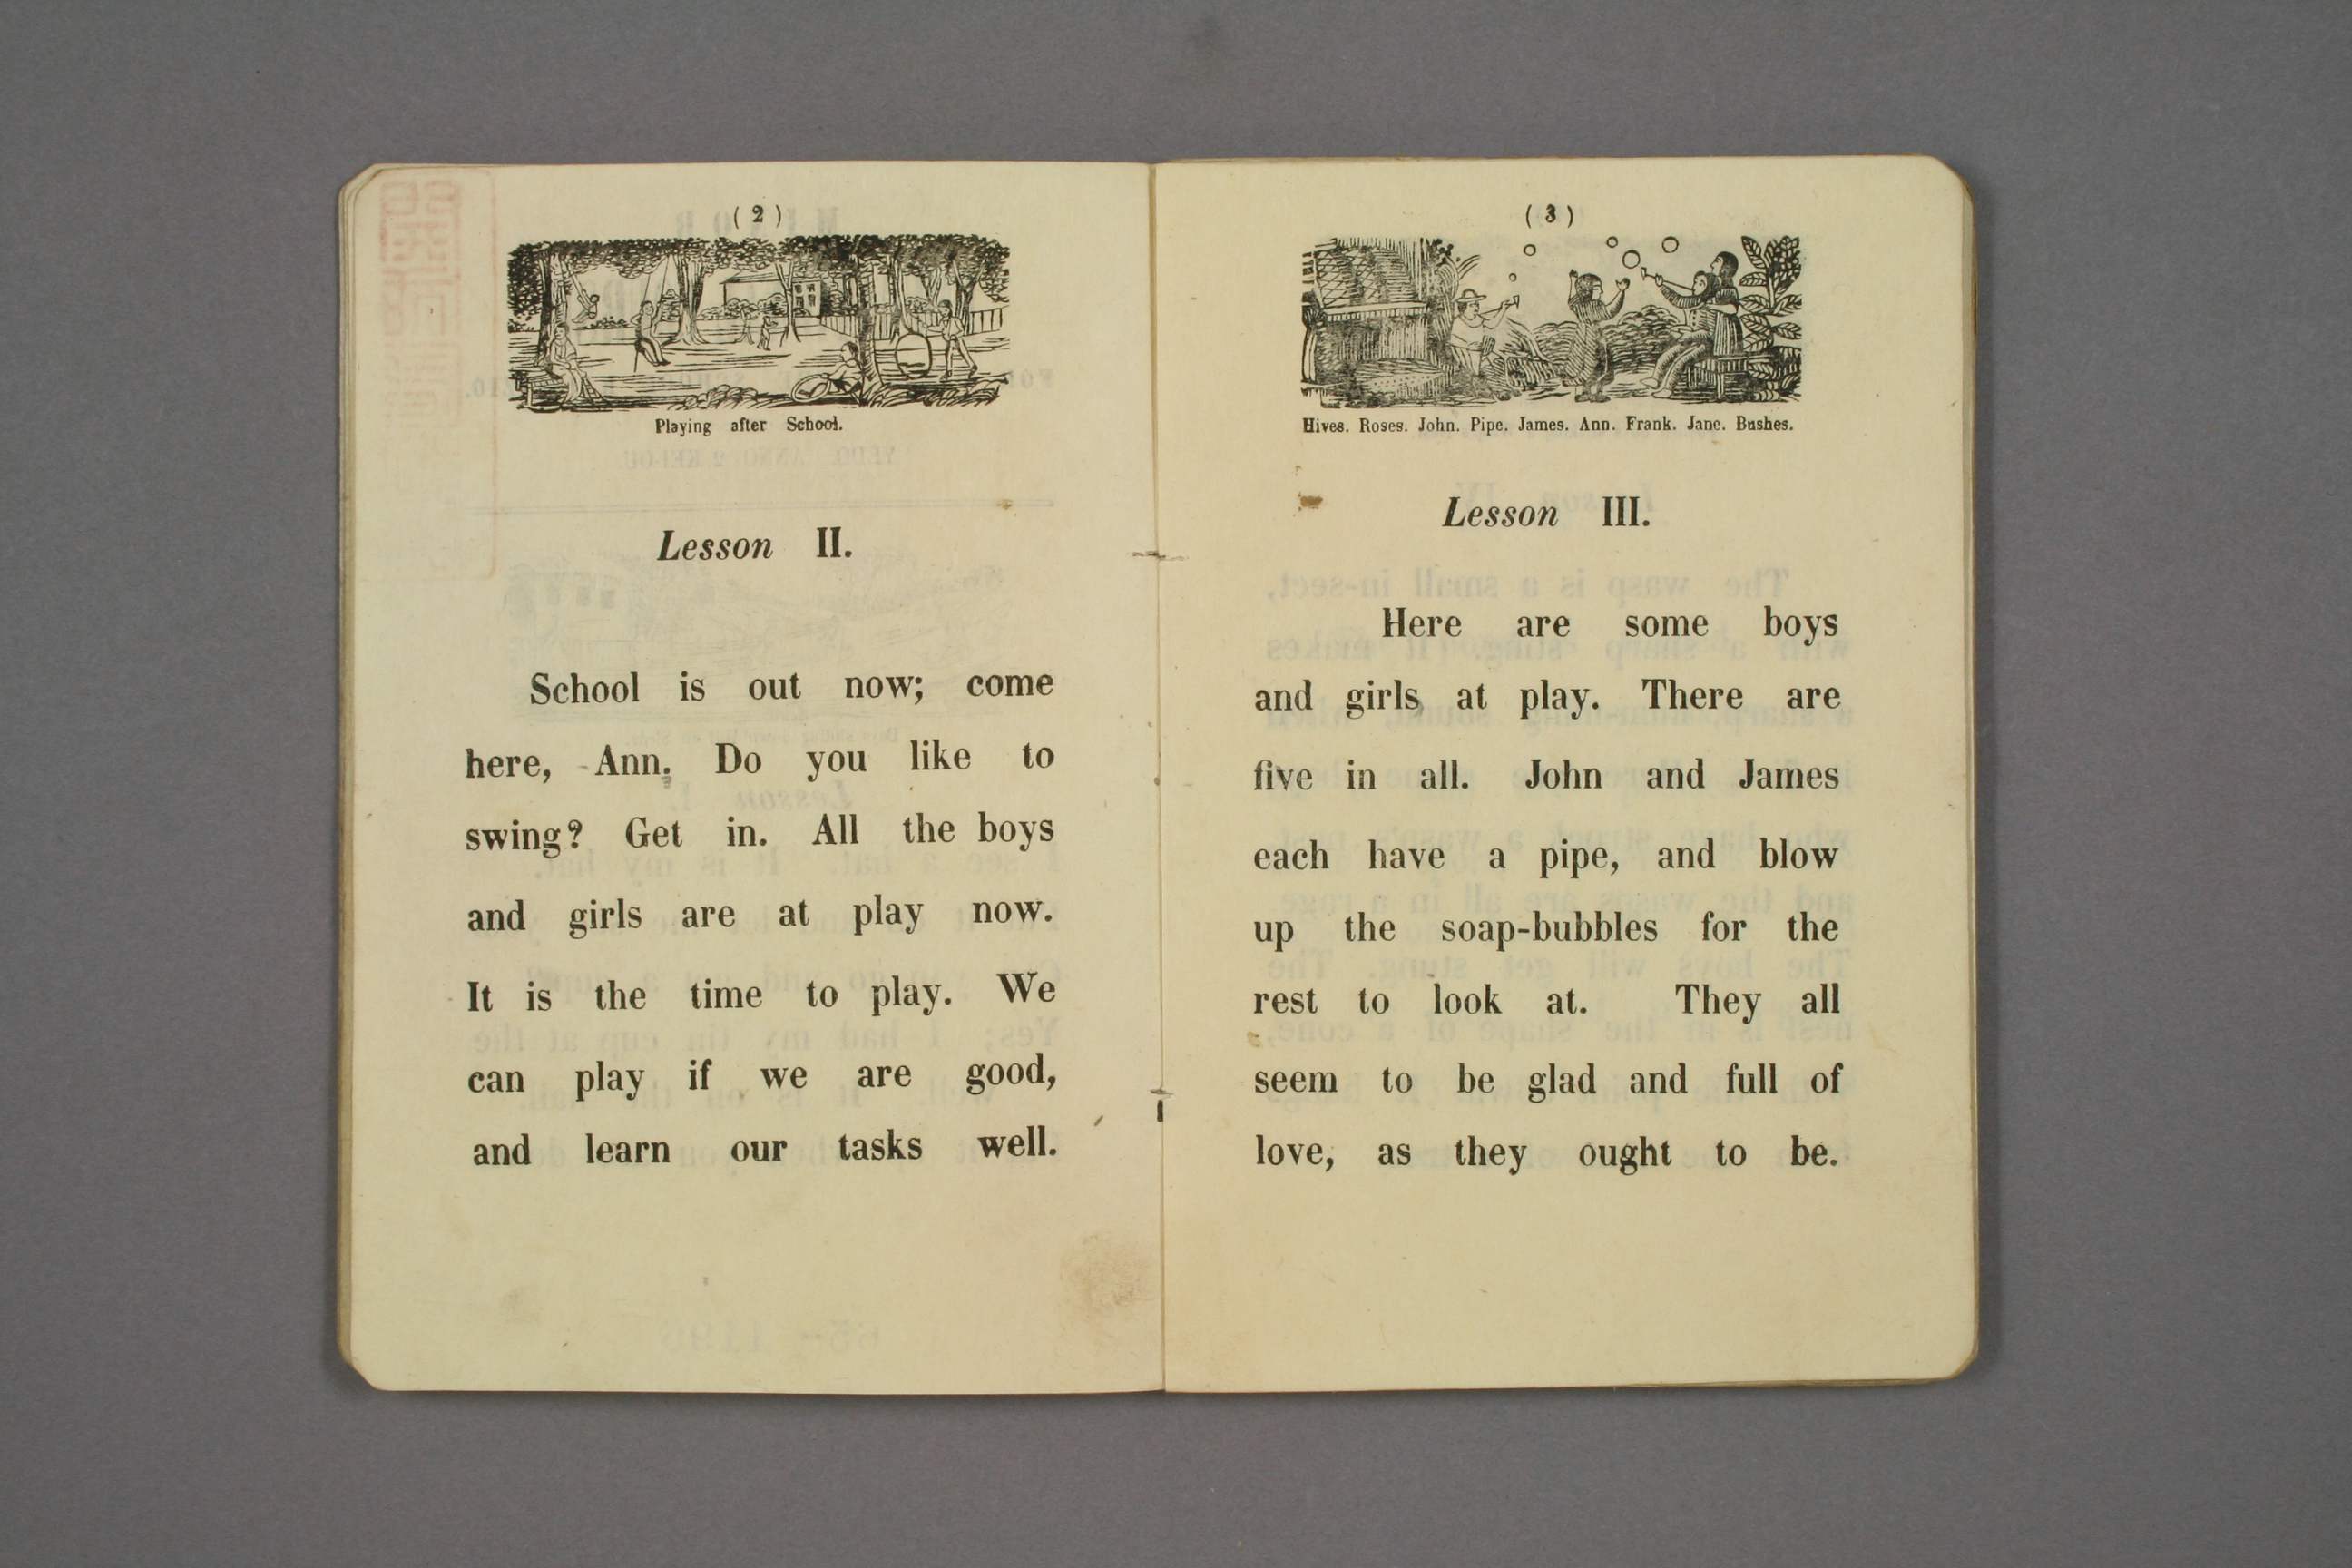 ( 2 )
Playing after School.
Lesson II.
School is out now; come
here, Ann. Do you like to
swing? Get in. All the boys
and girls are at play now.
It is the time to play. We
can play if we are good,
and learn our tasks well.
( 3 )
Hives. Roses. John. Pipe. James. Ann. Frank. Jane. Bushes.
Lesson III.
Here are some boys
and girls at play. There are
five in all. John and James
each have a pipe, and blow
up the soap-bubbles for the
rest to look at. They all
seem to be glad and full of
love, as they ought to be.